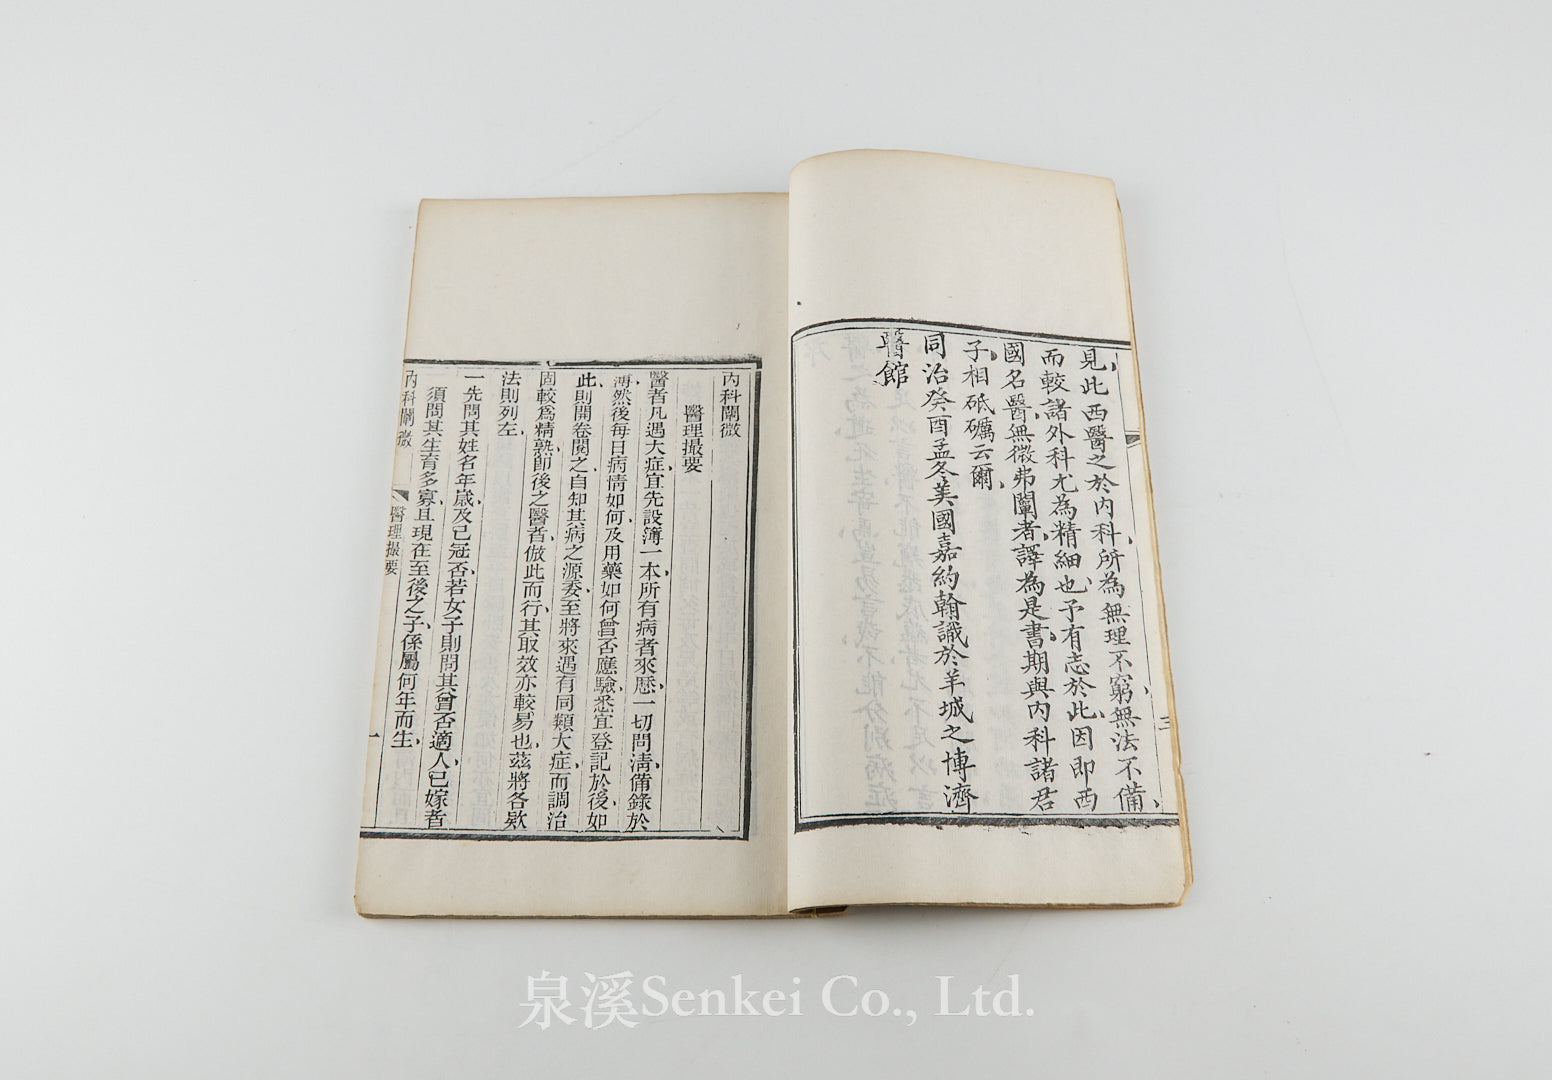 見此西醫之於內科所為無理不窮無法不備
而較諸外科尤為精細也予有志於此因即西
國名醫無微弗闡者譯為是書期與內科諸君
子相砥礪云爾
同治癸酉孟冬美國嘉約翰識於羊城之博濟
醫館
三
內科闡微
醫理撮要
醫者凡遇大症宜先設簿一本所有病者來歷一切問清備錄於
簿然後每日病情如何及用藥如何曾否應驗悉宜登記於後如
此則開卷閱之自知其病之源委至將來遇有同類大症而調治
固較爲精熟即後之醫者倣此而行其取效亦較易也茲將各欵
法則列左
一先問其姓名年歲及已冠否若女子則問其曾否適人已嫁者
須問其生育多寡且現在至後之子係屬何年而生
內科闡微
醫理撮要
一
泉溪Senkei Co., Ltd.